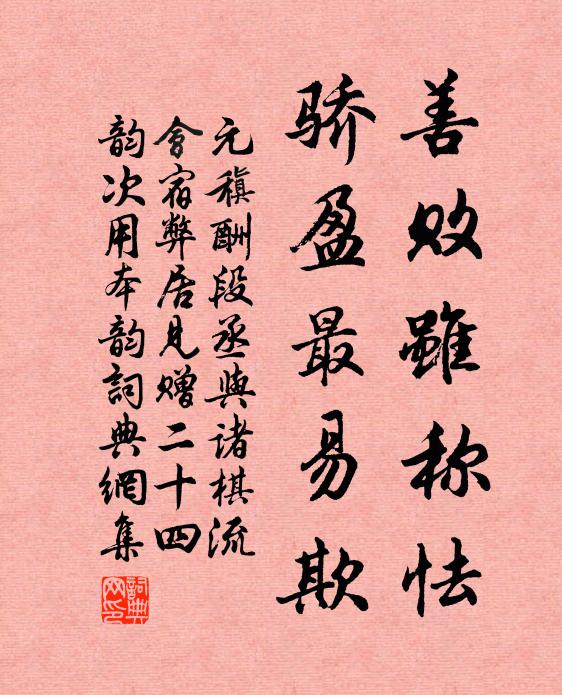 善败雖称怯
骄盈最易欺
元稹酬段丞與诸棋流
會宿弊居見赠二十四
韵次用本韵詞典網集
詞典
网印